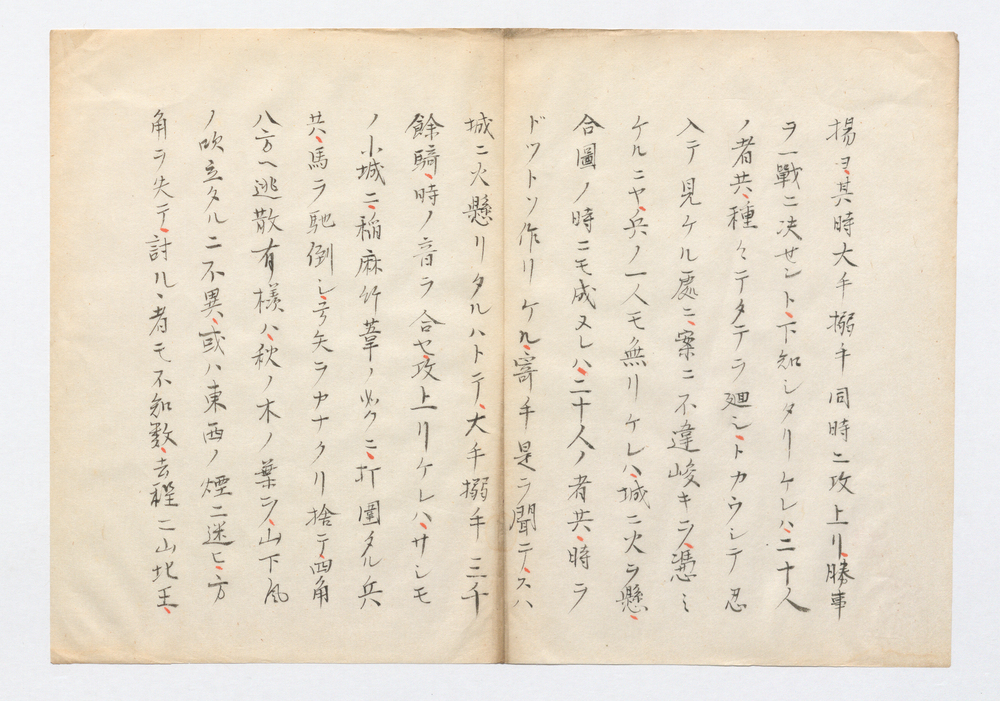 揚ヨ、其時大手搦手同時ニ攻上リ、勝事
ヲ一戰ニ决セント、下知シタリケレハ、二十人
ノ者共、種々テタテヲ廻シ、トカウシテ忍
入テ見ケル處ニ、案ニ不違峻キヲ、憑ミ
ケルニヤ、兵ノ一人モ無リケレハ、城ニ火ヲ懸、
合圖ノ時ニモ成ヌレハ、二十人ノ者共、時ヲ
ドツトソ作リケル、寄手是ヲ聞テ、スハ
城ニ火懸リタルハトテ、大手搦手三千
餘騎、時ノ音ヲ合セ、攻上リケレハ、サシモ
ノ小城ニ、稲麻竹葦ノ如クニ、打圍タル兵
共、馬ヲ馳倒シ、弓矢ヲカナクリ捨テ、四角
八方ヘ逃散有樣ハ、秋ノ木ノ葉ヲ、山下風
ノ吹立タルニ不異、或ハ東西ノ煙ニ迷ヒ、方
角ヲ失テ、討ルヽ者モ不知數、去程ニ山北王、